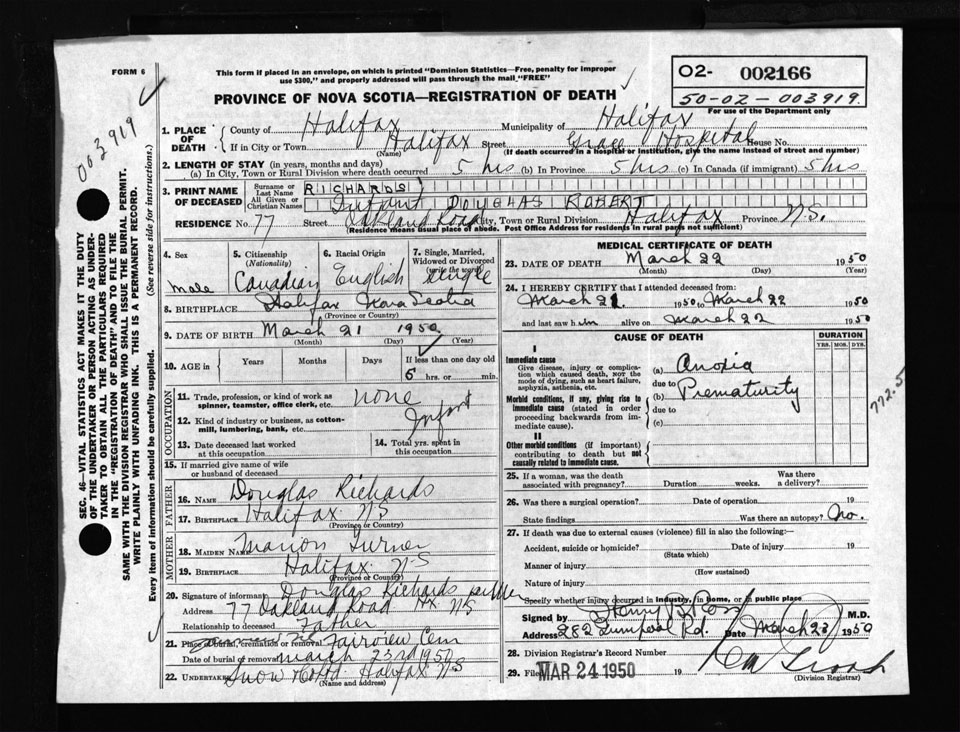 FORM 6
This form if placed in an envelope, on which is printed "Dominion Statistics—Free, penalty for improper
use $300," and properly addressed will pass through the mail "FREE"
O2- 002166
50-02-003919
For use of the Department only
PROVINCE OF NOVA SCOTIA—REGISTRATION OF DEATH
003919
SEC. 46—VITAL STATISTICS ACT MAKES IT THE DUTY
OF THE UNDERTAKER OR PERSON ACTING AS UNDER-
TAKER TO OBTAIN ALL THE PARTICULARS REQUIRED
IN THE "REGISTRATION OF DEATH" AND TO FILE THE
SAME WITH THE DIVISION REGISTRAR WHO SHALL ISSUE THE BURIAL PERMIT.
WRITE PLAINLY WITH UNFADING INK. THIS IS A PERMANENT RECORD.
Every item of information should be carefully supplied. (See reverse side for instructions.)
1. PLACE OF DEATH County of Halifax Municipality of Halifax
If in City or Town Halifax Street Grace Hospital House No.
(Name) (If death occurred in a hospital or institution, give the name instead of street and number)
2. LENGTH OF STAY (in years, months and days)
(a) In City, Town or Rural Division where death occurred 5 hrs (b) In Province 5 hrs (c) In Canada (if immigrant) 5 hrs
3. PRINT NAME OF DECEASED Surname or Last Name RICHARDS
All Given or Christian Names Infant DOUGLAS ROBERT
RESIDENCE No. 77 Street Oakland Road City, Town or Rural Division Halifax Province N.S.
(Residence means usual place of abode. Post Office Address for residents in rural parts not sufficient)
4. Sex Male
5. Citizenship (Nationality) Canadian
6. Racial Origin English
7. Single, Married, Widowed or Divorced (write the word) Single
8. BIRTHPLACE Halifax Nova Scotia
(Province or Country)
9. DATE OF BIRTH March 21 1950
(Month) (Day) (Year)
10. AGE in Years Months Days If less than one day old
5 hrs. or min.
OCCUPATION
11. Trade, profession, or kind of work as
spinner, teamster, office clerk, etc. none
12. Kind of industry or business, as cotton-
mill, lumbering, bank, etc. Infant
13. Date deceased last worked
at this occupation
14. Total yrs. spent in
this occupation
15. If married give name of wife
or husband of deceased
FATHER
16. NAME Douglas Richards
17. BIRTHPLACE Halifax NS
(Province or Country)
MOTHER
18. MAIDEN NAME Marion Turner
19. BIRTHPLACE Halifax N-S
(Province or Country)
20. Signature of informant Douglas Richards
Address 77 Oakland Road Hx. NS
Relationship to deceased Father
21. Place of burial, cremation or removal Fairview Cem
Date of burial or removal March 23rd 1950
22. UNDERTAKER Snow Halifax NS
(Name and address)
MEDICAL CERTIFICATE OF DEATH
23. DATE OF DEATH March 22 1950
(Month) (Day) (Year)
24. I HEREBY CERTIFY that I attended deceased from:
March 21 1950 to March 22 1950
and last saw him alive on March 22 1950
CAUSE OF DEATH
DURATION
YRS. MOS. DYS.
I
Immediate cause
Give disease, injury or complica-
tion which caused death, NOT the
mode of dying, such as heart failure,
asphyxia, asthenia, etc.
(a) Anoxia
due to
Morbid conditions, if any, giving rise to
immediate cause (stated in order
proceeding backwards from im-
mediate cause).
(b) Prematurity
due to
(c)
772.5
II
Other morbid conditions (if important)
contributing to death but not
causally related to immediate cause.
25. If a woman, was the death
associated with pregnancy? Duration weeks. Was there
a delivery?
26. Was there a surgical operation? Date of operation 19
State findings Was there an autopsy? No.
27. If death was due to external causes (violence) fill in also the following:—
Accident, suicide or homicide? Date of injury 19
(State which)
Manner of injury
(How sustained)
Nature of injury
Specify whether injury occurred in industry, in home, or in public place
Signed by Henry B Ross M.D.
Address 282 Rd. Date March 23 1950
28. Division Registrar's Record Number
29. Filed MAR 24 1950 19
(Division Registrar)